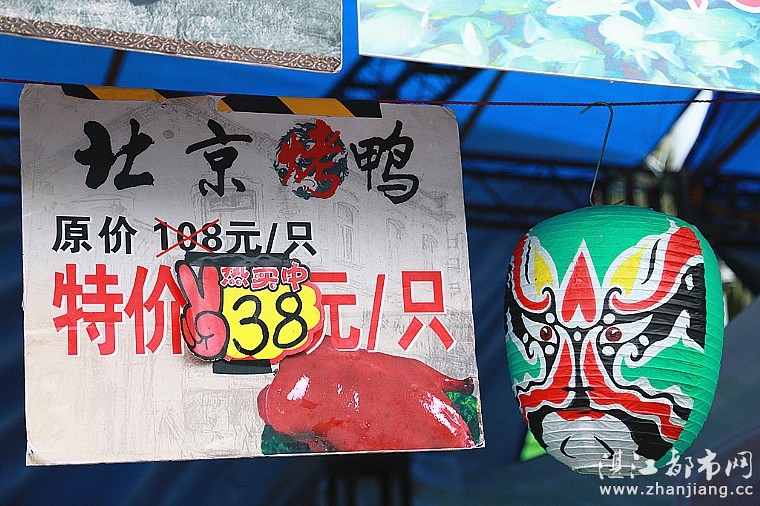 北京烤鸭
原价 108元/只
热卖中
特价 38元/只
湛江都市网
www.zhanjiang.cc